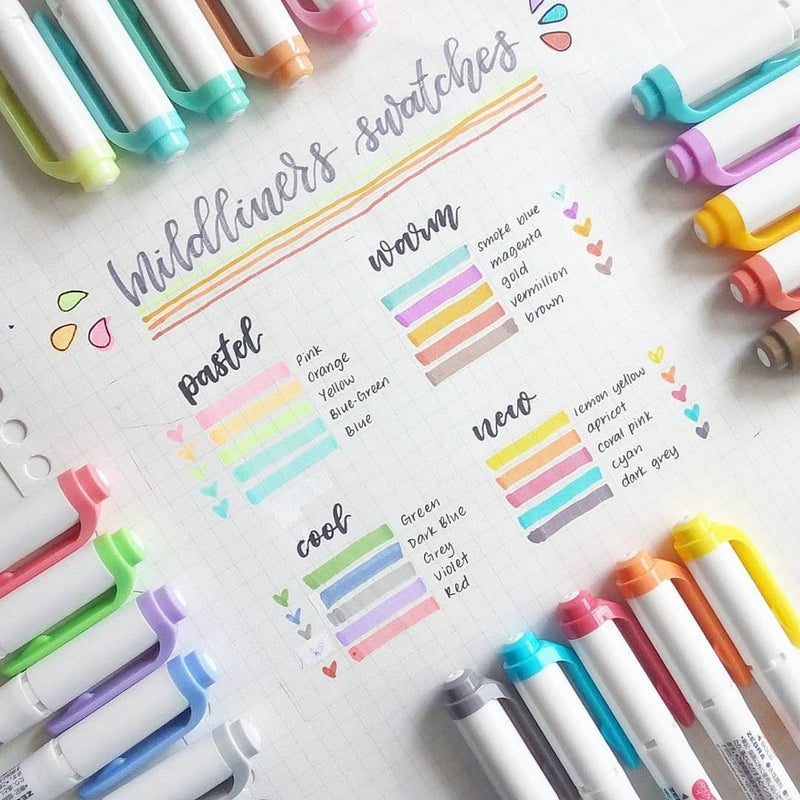 Mildliners swatches
warm
smoke blue
magenta
gold
vermillion
brown
pastel
Pink
Orange
Yellow
Blue-Green
Blue
new
lemon yellow
apricot
coral pink
cyan
dark grey
cool
Green
Dark Blue
Grey
Violet
Red
ZEBRA
ZEBRA